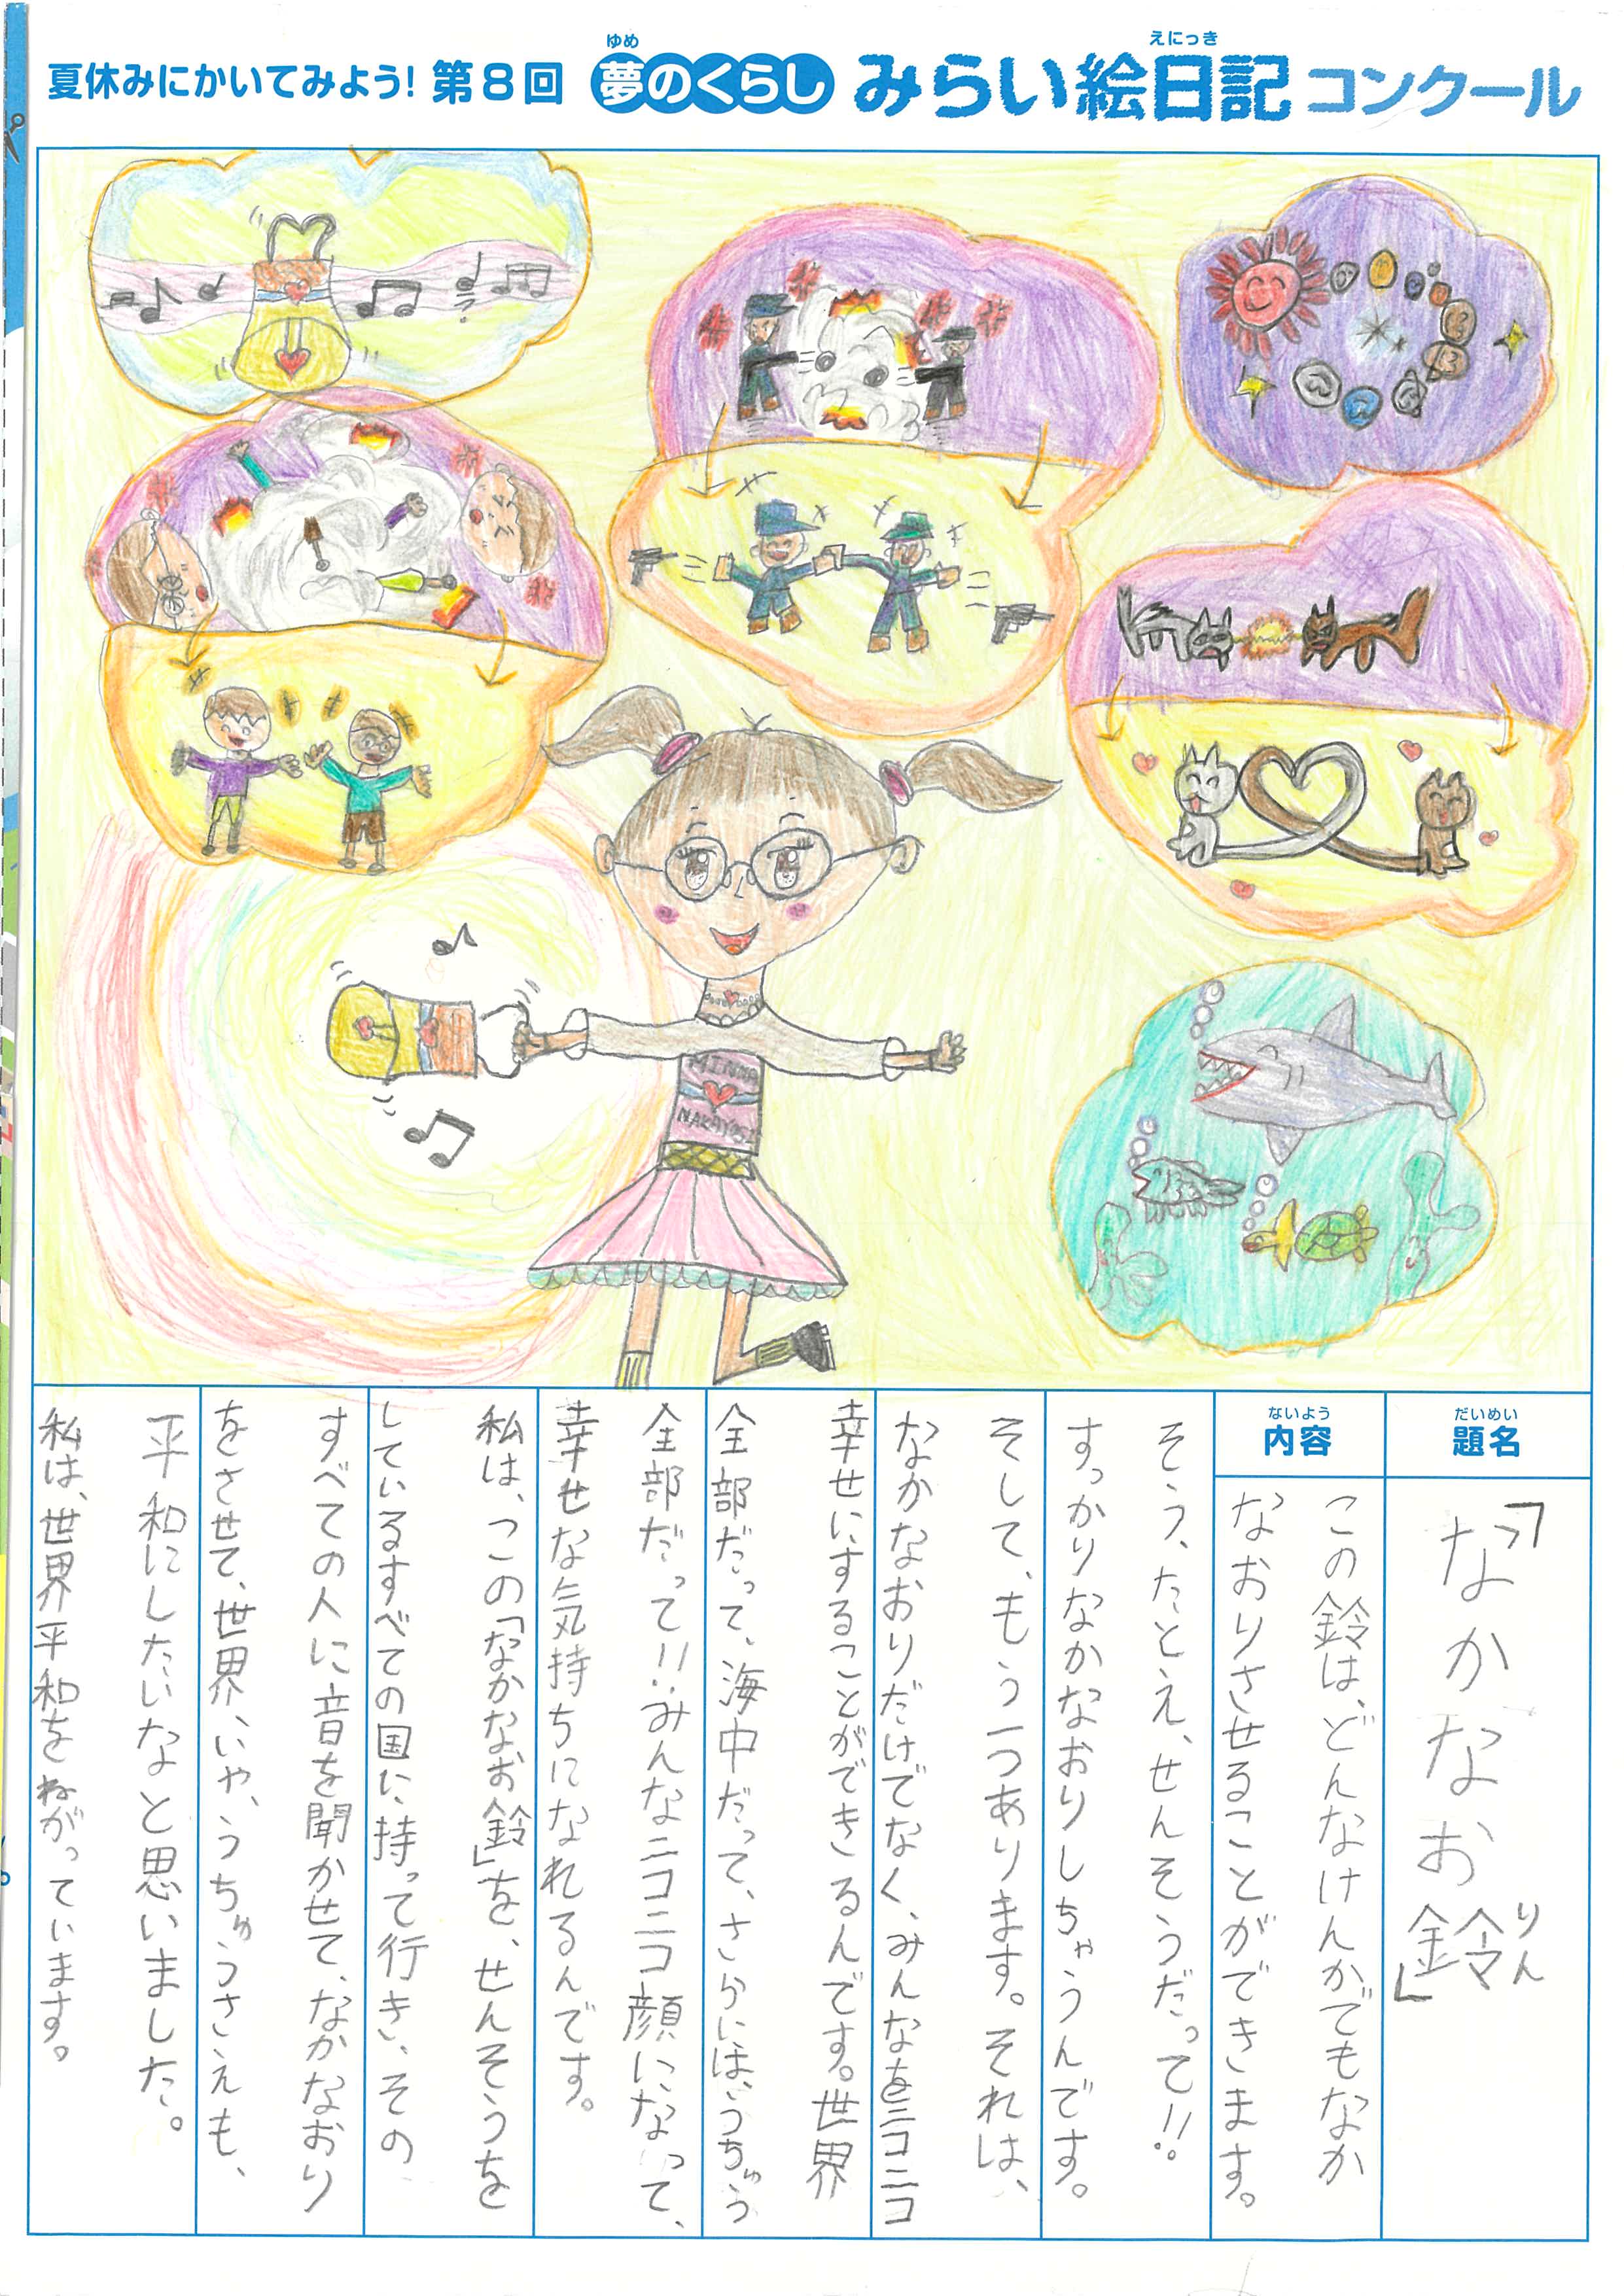 夏休みにかいてみよう! 第8回 夢のくらし みらい絵日記 コンクール
ゆめ
えにっき
MINNA
NAKAYOSI
だいめい
題名
「なかなお鈴」
りん
ないよう
内容
この鈴は、どんなけんかでもなか
なおりさせることができます。
そう、たとえ、せんそうだって!!
すっかりなかなおりしちゃうんです。
そして、もう一つあります。それは、
なかなおりだけでなく、みんなをニコニコ
幸せにすることができるんです。世界
全部だって、海中だって、さらには、うちゅう
全部だって!!みんなニコニコ顔になって、
幸せな気持ちになれるんです。
私は、この「なかなお鈴」を、せんそうを
しているすべての国に持って行き、その
すべての人に音を聞かせて、なかなおり
をさせて、世界、いや、うちゅうさえも、
平和にしたいなと思いました。
私は、世界平和をねがっています。